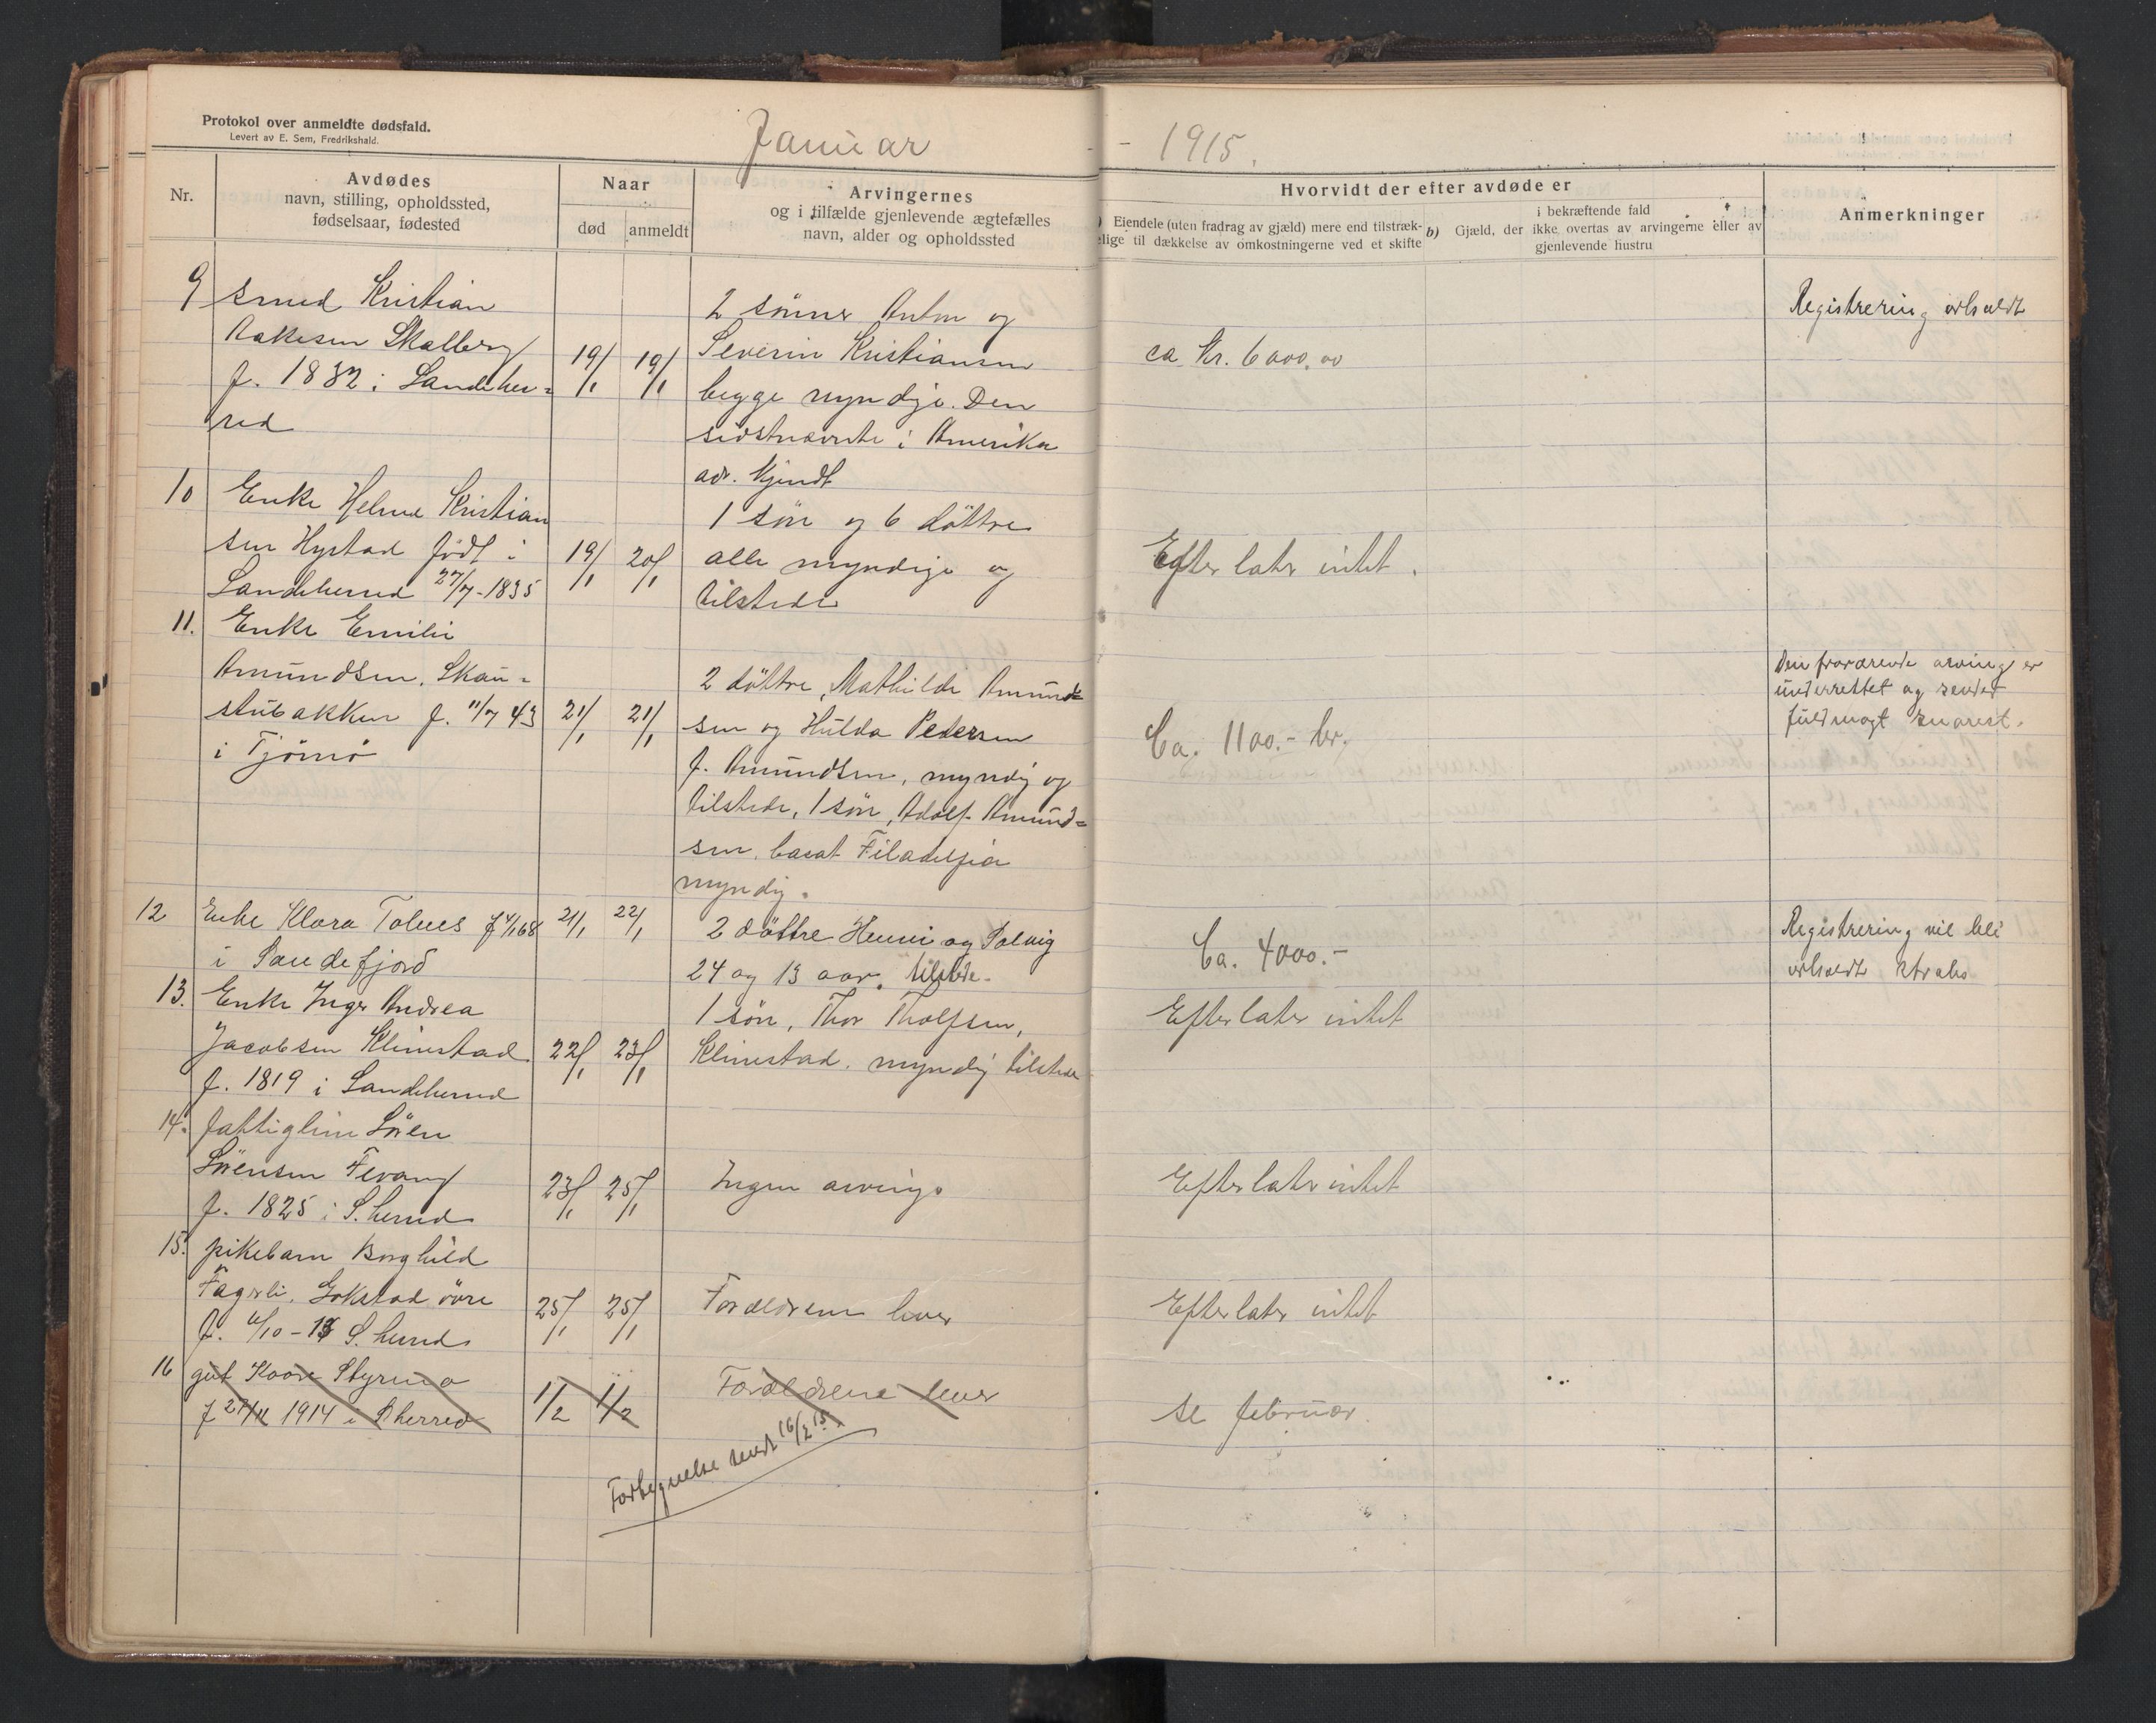 Protokol over anmeldte dødsfald.
Levert av E. Sem, Fredrikshald.
Januar - 1915.
Nr.
Avdødes
navn, stilling, opholdssted,
fødselsaar, fødested
Naar
død
anmeldt
Arvingernes
og i tilfælde gjenlevende ægtefælles
navn, alder og opholdssted
Hvorvidt der efter avdøde er
Eiendele (uten fradrag av gjæld) mere end tilstræk-
elige til dækkelse av omkostningerne ved et skifte
b) Gjæld, der ikke overtas av arvingerne eller av
i bekræftende fald
gjenlevende hustru
Anmerkninger
9 smed Kristian
Aakesen Skalberg
f. 1832 i Sandeher-
red
19/1 19/1
2 sönner Anton og
Severin Kristiansen
begge myndige. Den
sidstnævnte i Amerika
adr. kjendt
ca. kr. 6000,00
Registrering avholdt
10 Enke Helene Kristian
sen Hystad født i
Sandeherred 27/7-1835
19/1 20/1
1 sön og 6 döttre
alle myndige og
tilstede
Efterlater intet.
11. Enke Emilie
Amundsen, Skau-
stubakken f. 11/7 43
i Tjömö
21/1 21/1
2 döttre, Mathilde Amund-
sen og Hulda Pedersen
f. Amundsen, myndig og
tilstede, 1 sön, Adolf Amund-
sen, bosat Filadelfia
myndig.
Ca. 1100.- kr.
Den fraværende arving er
underrettet og sender
fuldmagt snarest.
12 Enke Klara Tolnes f 4/1 68
i Sandefjord
21/1 22/1
2 döttre Henni og Solveig
24 og 13 aar, tilstede.
Ca. 4000.-
Registrering vil bli
avholdt straks
13. Enke Inger Andrea
Jacobsen Klinestad
f. 1819 i Sandeherred
22/1 23/1
1 sön, Thor Tholfsen,
Klinestad. myndig tilstede
Efterlater intet
14. fattiglem Sören
Sörensen Fevang
f. 1825 i S.herred
23/1 25/1
Ingen arving.
Efterlater intet
15. pikebarn Borghild
Fagerli, Gokstad övre
f. 6/10-13 S.herred
25/1 25/1
Forældrene lever
Efterlater intet
16 gut Kaare Styrmo
f 27/11 1914 i S herred
1/2 1/2
Forældrene lever
se februar.
Fortegnelse sendt 16/2 15.